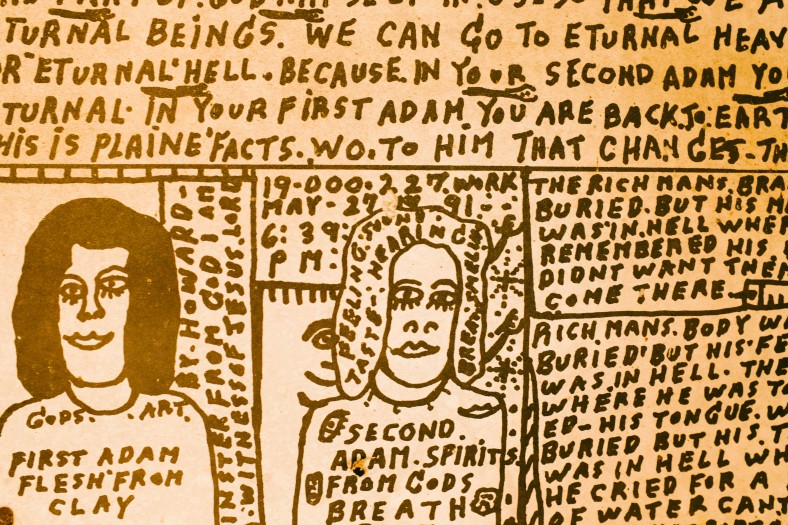 TURNAL BEINGS. WE CAN GO TO ETURNAL HEAV
OR ETURNAL HELL. BECAUSE. IN YOUR SECOND ADAM YO
TURNAL. IN YOUR FIRST ADAM. YOU ARE BACK.TO.EART
HIS IS PLAINE FACTS. WO. TO HIM THAT CHANGES-TH
BY. HOWARD-
FROM GOD I AM
WITNESS OF JESUS. LORD
GODS. ART.
FIRST ADAM
FLESH FROM
CLAY
19-000.227. WORK
MAY-27 1991
6:39
P M.
FEELING.
TASTE- HEARING
SMELLING
SECOND.
ADAM. SPIRITS
FROM GODS
BREATH
THE RICH MANS. BRA
BURIED. BUT HIS M
WAS IN HELL WHER
REMEMBERED HIS
DIDNT WANT THEM
COME THERE.
RICH. MANS. BODY W
BURIED BUT HIS. FE
WAS IN HELL. THE
WHERE HE WAS TO
ED- HIS TONGUE. W
BURIED BUT HIS. T
WAS IN HELL WH
HE CRIED FOR A
OF WATER CANT